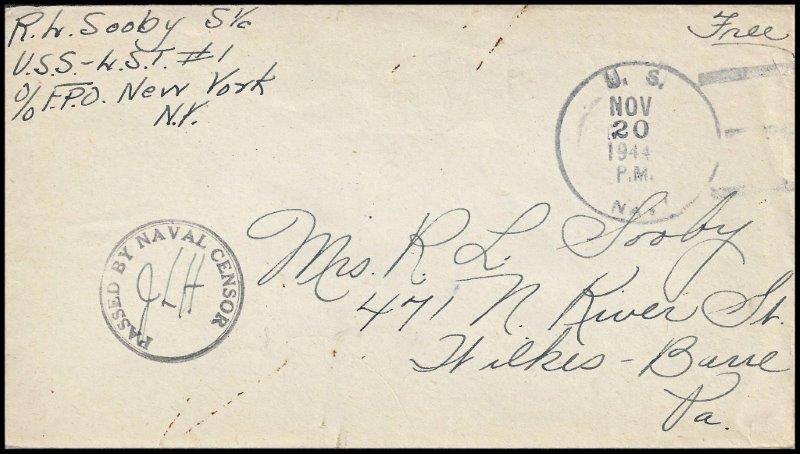 R. L. Sooby S1/c
U.S.S.-L.S.T. #1
c/o F.P.O. New York
N.Y.
Free
U. S.
NOV
20
1944
P.M.
PASSED BY NAVAL CENSOR
JLH
Mrs. R. L. Sooby
471 N. River St.
Wilkes-Barre
Pa.